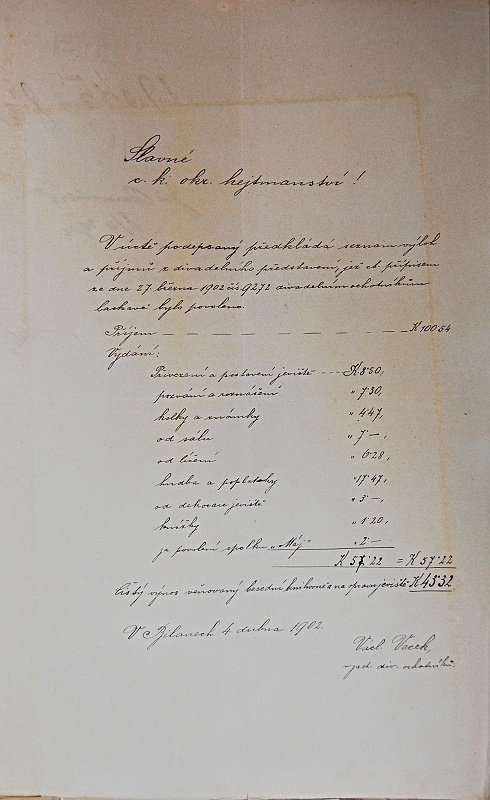 Slavné
c. k. okr. hejtmanství!
V úctě podepsaný předkládá seznam výloh
a příjmů z divadelního představení, jež ct. přípisem
ze dne 27. března 1902 čís. 9272 divadelním ochotníkům
laskavě bylo povoleno.
Příjem — — — — — — — — — K 100·54
Vydání:
Přivezení a postavení jeviště --- K 8·50,
pozvání a roznášení " 7·30,
kolky a známky " 4·47,
od sálu " 7 —,
od líčení " 6·28,
hudba a poplatky " 17·47,
od dekorace jeviště " 3 —,
knížky " 1·20,
za povolení spolku „Máj" " 2 —
K 57·22 = K 57·22
čistý výnos věnovaný besední knihovně a na opravu jeviště K 45·32
V Bílanech 4 dubna 1902
Václ. Vecek,
div. ochotníků.